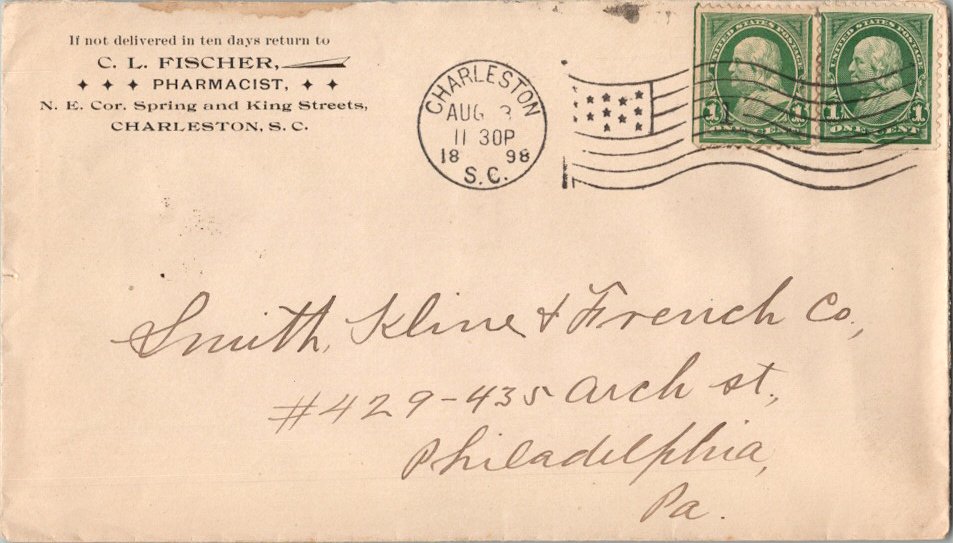 If not delivered in ten days return to
C. L. FISCHER,
PHARMACIST,
N. E. Cor. Spring and King Streets,
CHARLESTON, S. C.
CHARLESTON
AUG 3
11 30P
18 98
S.C.
UNITED STATES POSTAGE
1 1
ONE CENT
UNITED STATES POSTAGE
1 1
ONE CENT
Smith, Kline & French Co.,
#429-435 Arch st.,
Philadelphia,
Pa.